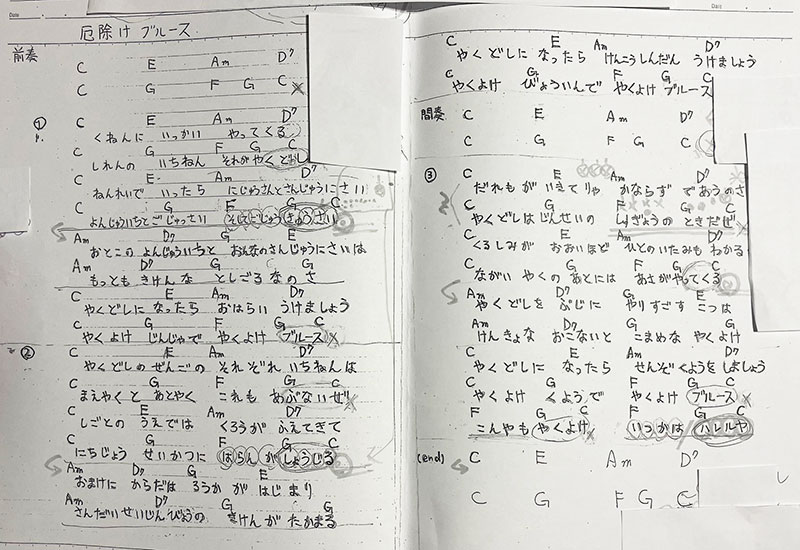 厄除け ブルース
前奏
C E Am D7
C G F G C
①
C E Am D7
くねんに いっかい やってくる
C G F G C
しれんの いちねん それが やくどし
C E Am D7
ねんれいで いったら にじゅうさんとさんじゅうにさい
C G F G C
よんじゅういちとごじゅっさい そしてごじゅうきゅうさい
Am D7 G E
おとこの よんじゅういちと おんなのさんじゅうにさいは
Am D7 G G
もっとも きけんな としごろ なのさ
C E Am D7
やくどしに なったら おはらい うけましょう
C G F G C
やくよけ じんじゃで やくよけ ブルース
②
C E Am D7
やくどしの ぜんごの それぞれ いちねんは
C G F G C
まえやくと あとやく これも あぶないぜ
C E Am D7
しごとの うえでは くろうが ふえてきて
C G F G C
にちじょう せいかつに はらんが しょうじる
Am D7 G E
おまけに からだは ろうかが はじまり
Am D7 G G
さんだいせいじんびょうの きけんが たかまる
C E Am D7
やくどしに なったら けんこうしんだん うけましょう
C G F G C
やくよけ びょういんで やくよけ ブルース
間奏
C E Am D7
C G F G C
③
C E Am D7
だれもが いえてりゃ かならず であうのさ
C G F G C
やくどしはじんせいの しゅぎょうの ときだぜ
C E Am D7
くるしみが おおいほど ひとのいたみも わかる
C G F G C
ながい やくの あとには あさがやってくる
Am D7 G E
やくどしを ぶじに やりすごす こつは
Am D7 G G
けんきょな おこないと こまめな やくよけ
C E Am D7
やくどしに なったら せんぞくようを しましょう
C G F G C
やくよけ くようで やくよけ ブルース
F G C F G C
こんやも やくよけ いつかは ハレルヤ
(end) C E Am D7
C G F G C